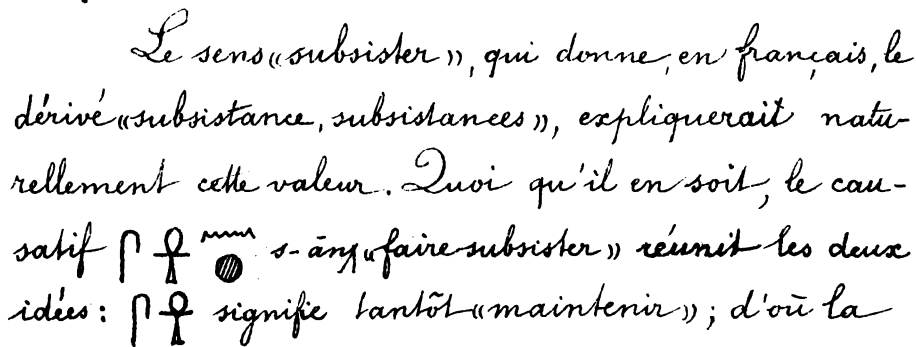 Le sens «subsister», qui donne, en français, le
dérivé «subsistance, subsistances», expliquerait natu-
rellement cette valeur. Quoi qu'il en soit, le cau-
satif 𓋴 𓋹 𓈖 𓐍 s-ānχ «faire subsister» réunit les deux
idées: 𓋴 𓋹 signifie tantôt «maintenir»; d'où la